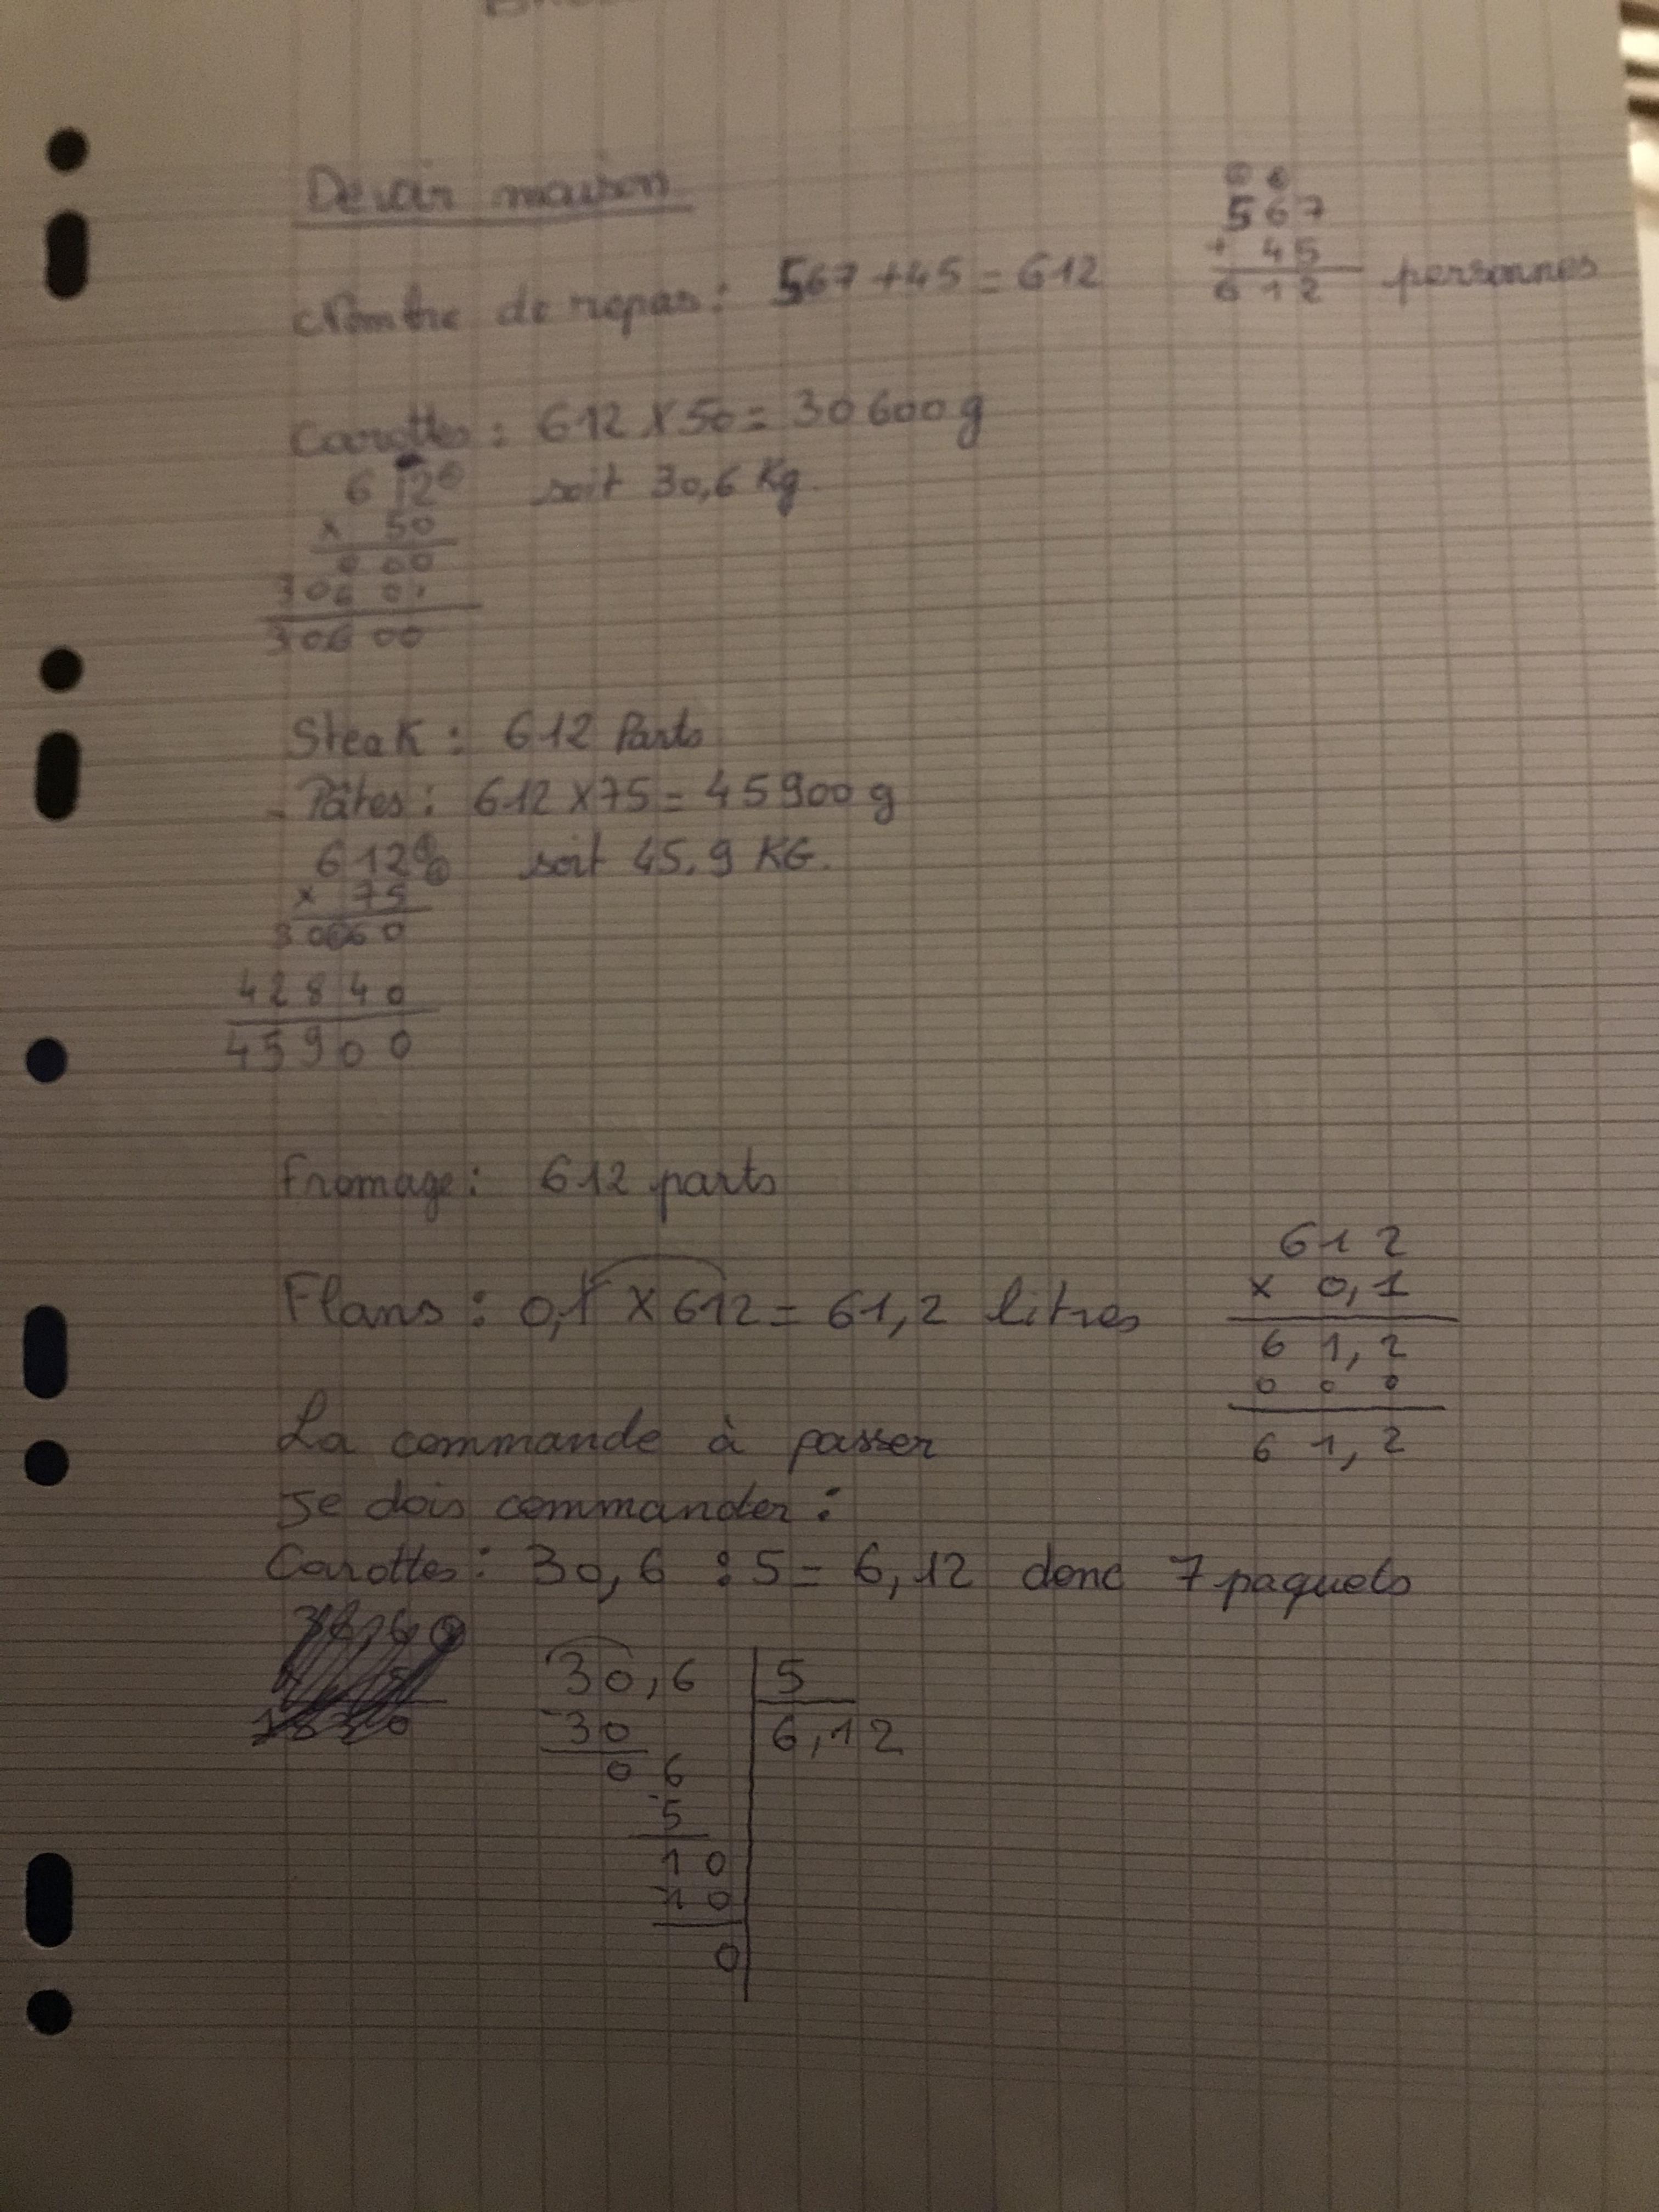 Devoir maison
Nombre de repas : 567 + 45 = 612
567
+ 45
612 personnes
Carottes : 612 x 50 = 30 600 g
soit 30,6 Kg.
612
x 50
000
30600
Steak : 612 Parts
- Pâtes : 612 x 75 = 45 900 g
soit 45.9 KG.
612
x 75
3060
42840
45900
Fromage : 612 parts
Flans : 0,1 x 612 = 61,2 litres
612
x 0,1
61,2
000
61,2
La commande à passer
Je dois commander :
Carottes : 30,6 : 5 = 6,12 donc 7 paquets
30,6 | 5
-30 | 6,12
06
-5
10
-10
0